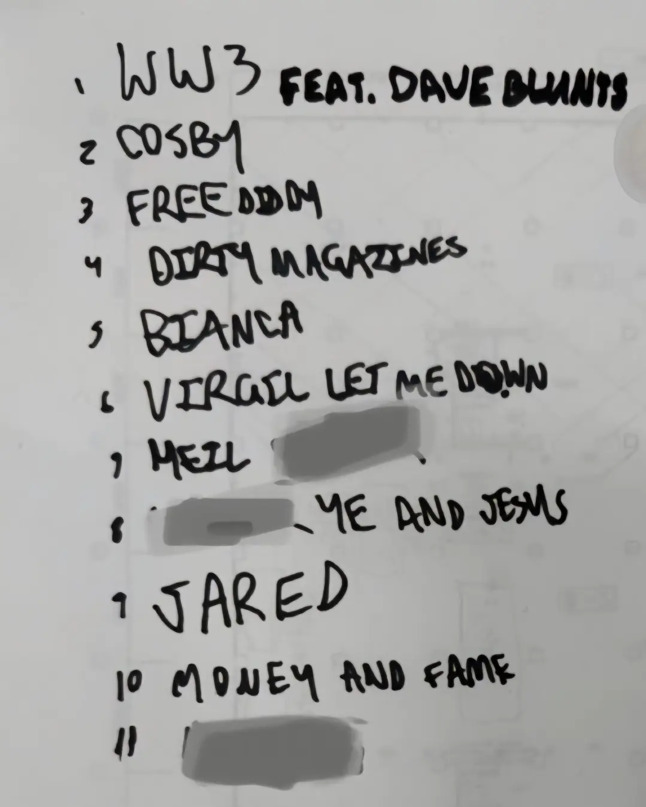 1 WW3 FEAT. DAVE BLUNTS
2 COSBY
3 FREE DIDDY
4 DIRTY MAGAZINES
5 BIANCA
6 VIRGIL LET ME DOWN
7 MEIL
8 YE AND JESUS
9 JARED
10 MONEY AND FAME
11